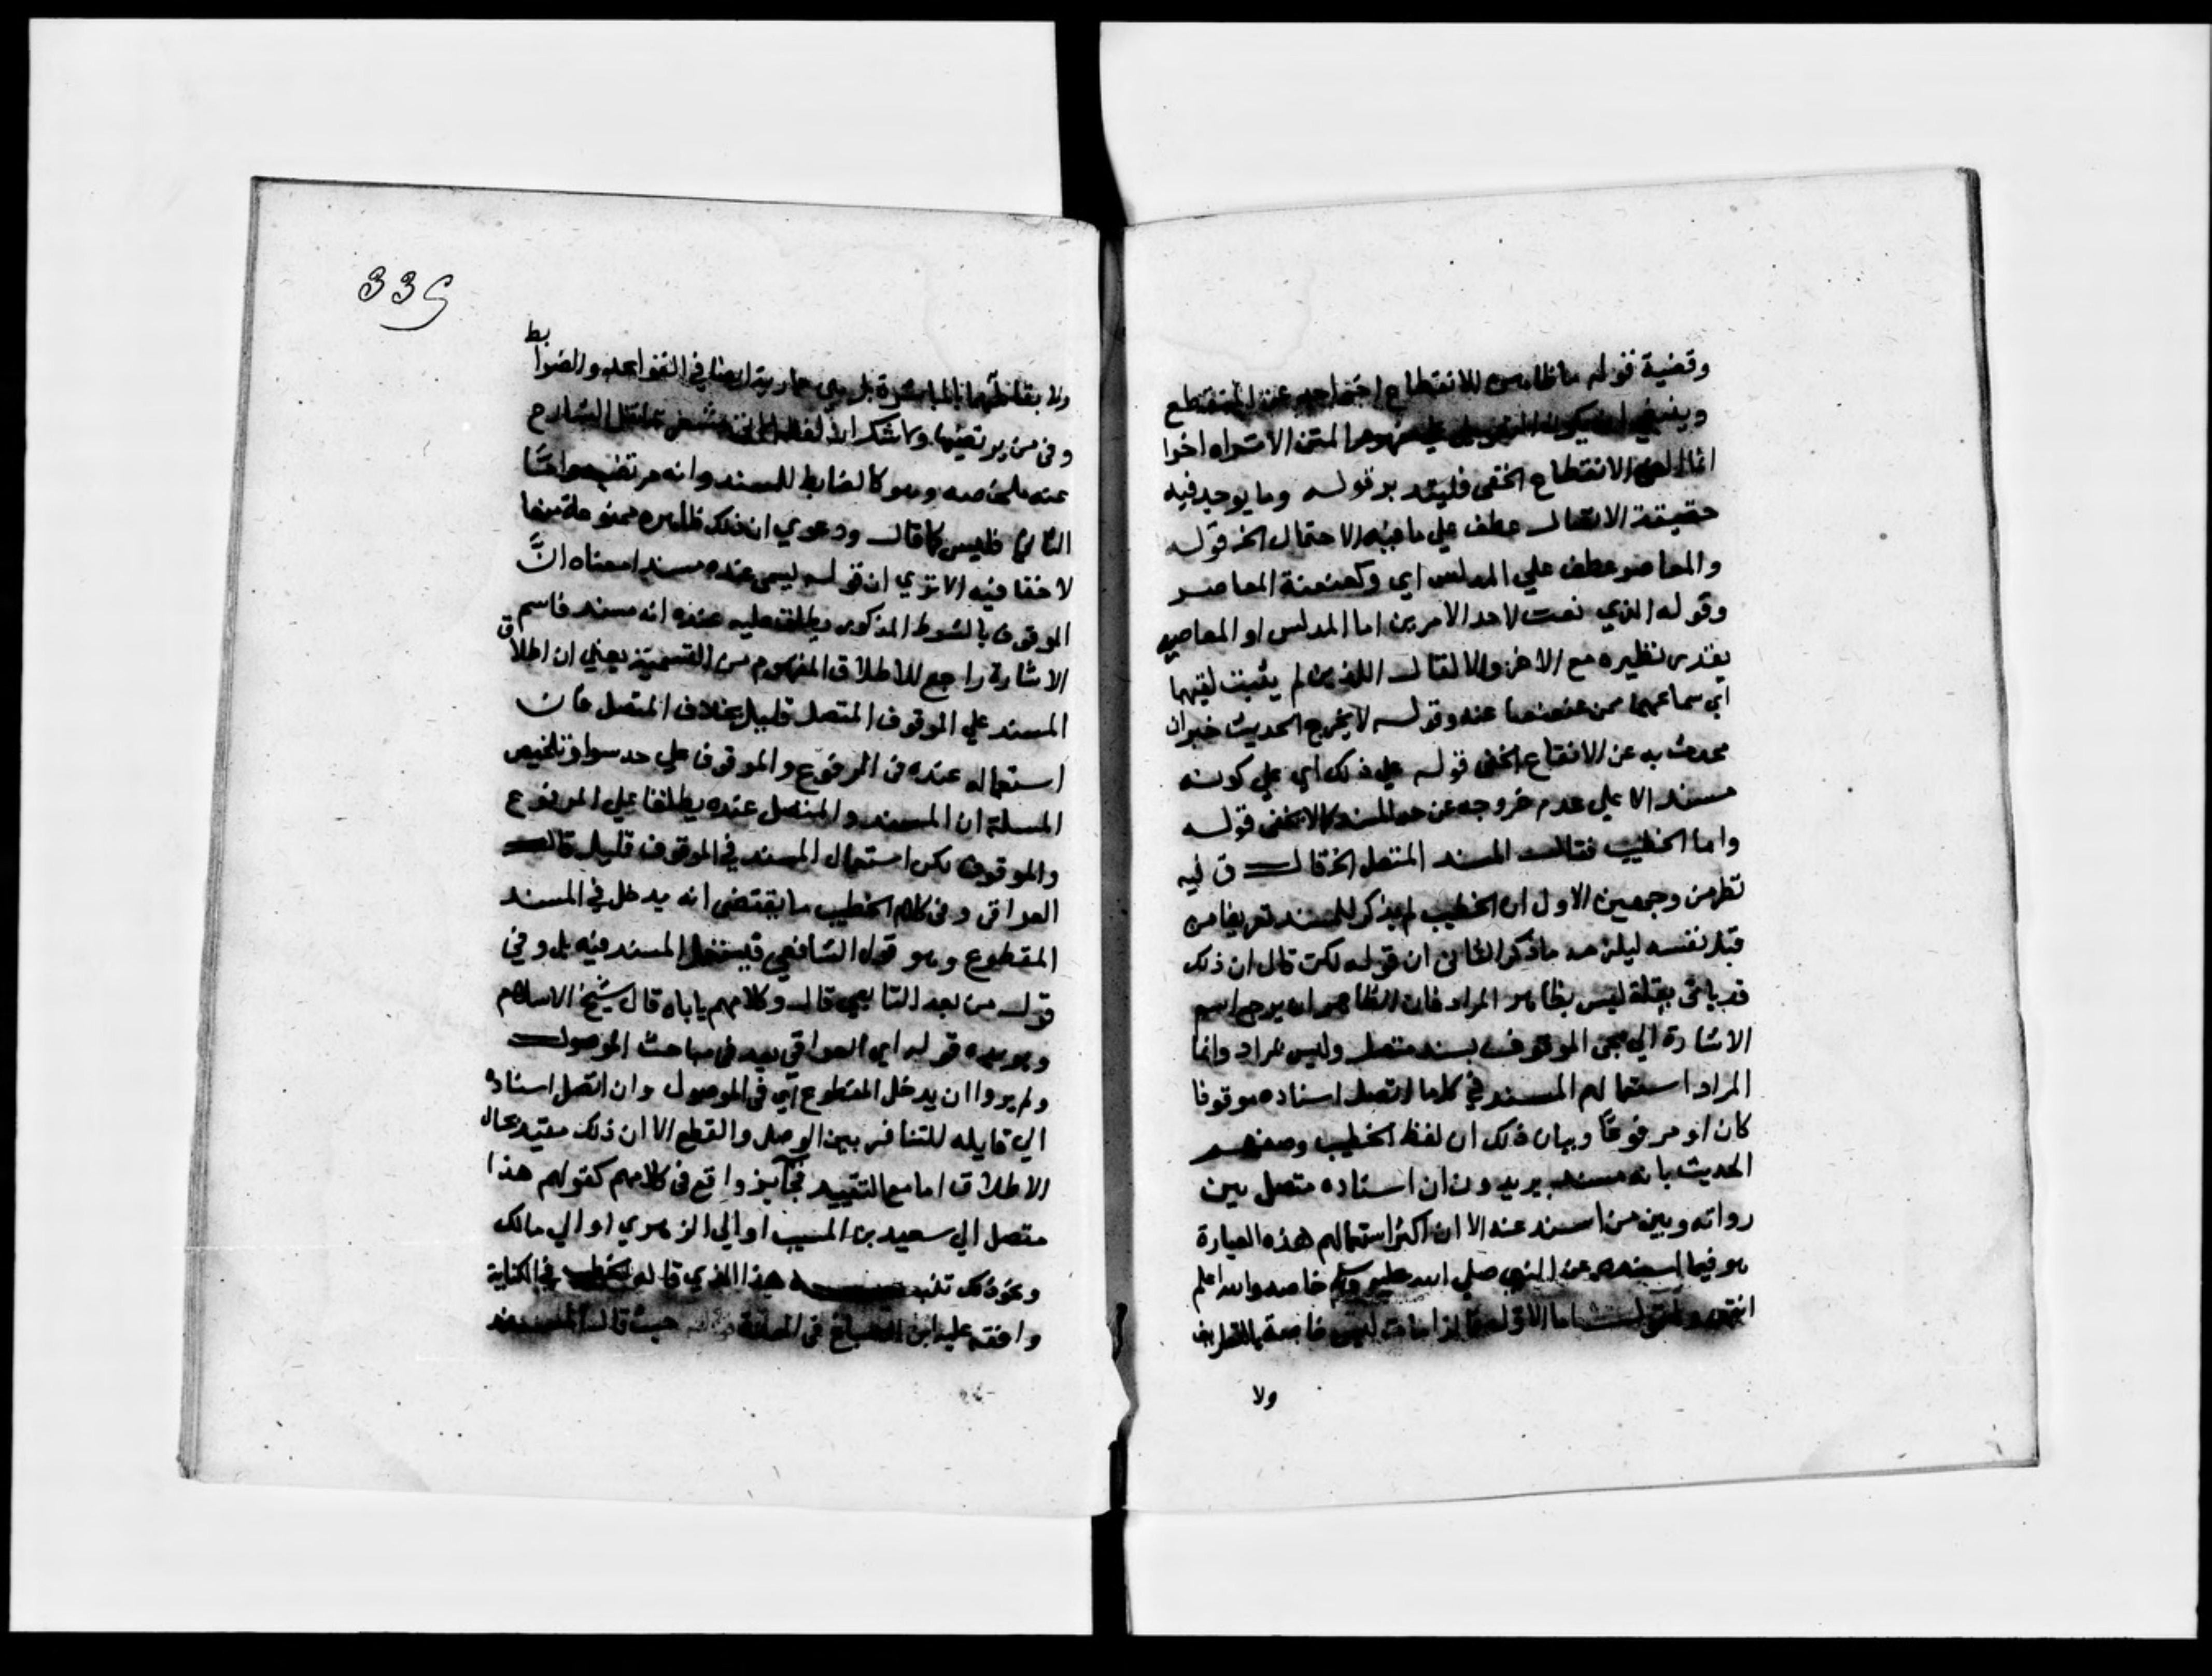 وقضية قوله ما ظاهره للانقطاع
وينبغي ان يكون المتن الاستواه اخوا
الانقطاع الخفي فليتدبر قوله وما يوجد فيه
حقيقة الاتصال عطف علي ما فيه الاحتمال الخ قوله
والمعاصر عطف علي المدلس اي وكعنعنة المعاصر
وقوله الذي نعت لاحد الامرين اما المدلس او المعاصر
يقدر نظيره مع الاخر والا لقال اللذين لم يثبت لقيهما
اي سماعهما ممن عنعنا عنه وقوله لا يخرج الحديث خبر ان
به عن الانقطاع الخفي قوله علي ذلك اي علي كونه
مسندا لا علي عدم خروجه عن حد المسند كما لا يخفى قوله
واما الخطيب فقال المسند المتصل الخ قال ق فيه
نظر من وجهين الاول ان الخطيب لم يذكر للمسند تعريفا من
قبل نفسه ليلزمه ما ذكر الثاني ان قوله لكن قال ان ذلك
قد ياتي بقلة ليس بظاهر المراد فان الظاهر انه يرجع اسم
الاشارة الي مجي الموقوف بسند متصل وليس بمراد وانما
المراد استعمالهم المسند في كلما اتصل اسناده موقوفا
كان او مرفوعا وبيان ذلك ان لفظ الخطيب وصفهم
الحديث بانه مسند يريدون ان اسناده متصل بين
رواته وبين من اسند عنه الا ان اكثر استعمالهم هذه العبارة
هو فيما اسند عن النبي صلي الله عليه وسلم خاصه والله اعلم
انتهي اما الاول
ولا
335
ولا بقائلها بالمباشرة بل هي جارية ايضا في القواعد والضوابط
وفي من يرتضيها
عنه ملخصه وهو كالضابط للمسند وانه مرتضيه واما
الثاني فليس كما قال ودعوي ان ذلك ظاهره ممنوعة منعا
لا خفا فيه الا تري ان قوله ليسمى عنده مسندا معناه ان
الموقوف بالشرط المذكور يطلق عليه عنده انه مسند فاسم
الاشارة راجع للاطلاق المفهوم من التسمية يعني ان اطلاق
المسند علي الموقوف المتصل قليل بخلاف المتصل فان
استعماله عنده في المرفوع والموقوف علي حد سوا وتلخيص
المسلة ان المسند والمتصل عنده يطلقا علي المرفوع
والموقوف لكن استعمال المسند في الموقوف قليل قال
العراقي وفي كلام الخطيب ما يقتضي انه يدخل في المسند
المقطوع وهو قول التابعي فيدخل المسند فيه بل وفي
قول من بعد التابعي قال وكلامهم ياباه قال شيخ الاسلام
ويويده قوله اي العراقي بعد في مباحث الموصول
ولم يروا ان يدخل المقطوع اي في الموصول وان اتصل اسناده
الي قايله للتنافر بين الوصل والقطع الا ان ذلك مقيد بحال
الاطلاق اما مع التقييد فجائز واقع في كلامهم كقولهم هذا
متصل الي سعيد بن المسيب او الي الزهري او الي مالك
ونحو ذلك هذا الذي قاله الخطيب في الكفاية
وافقه عليه ابن الصباغ في العدة حيث قال المسند